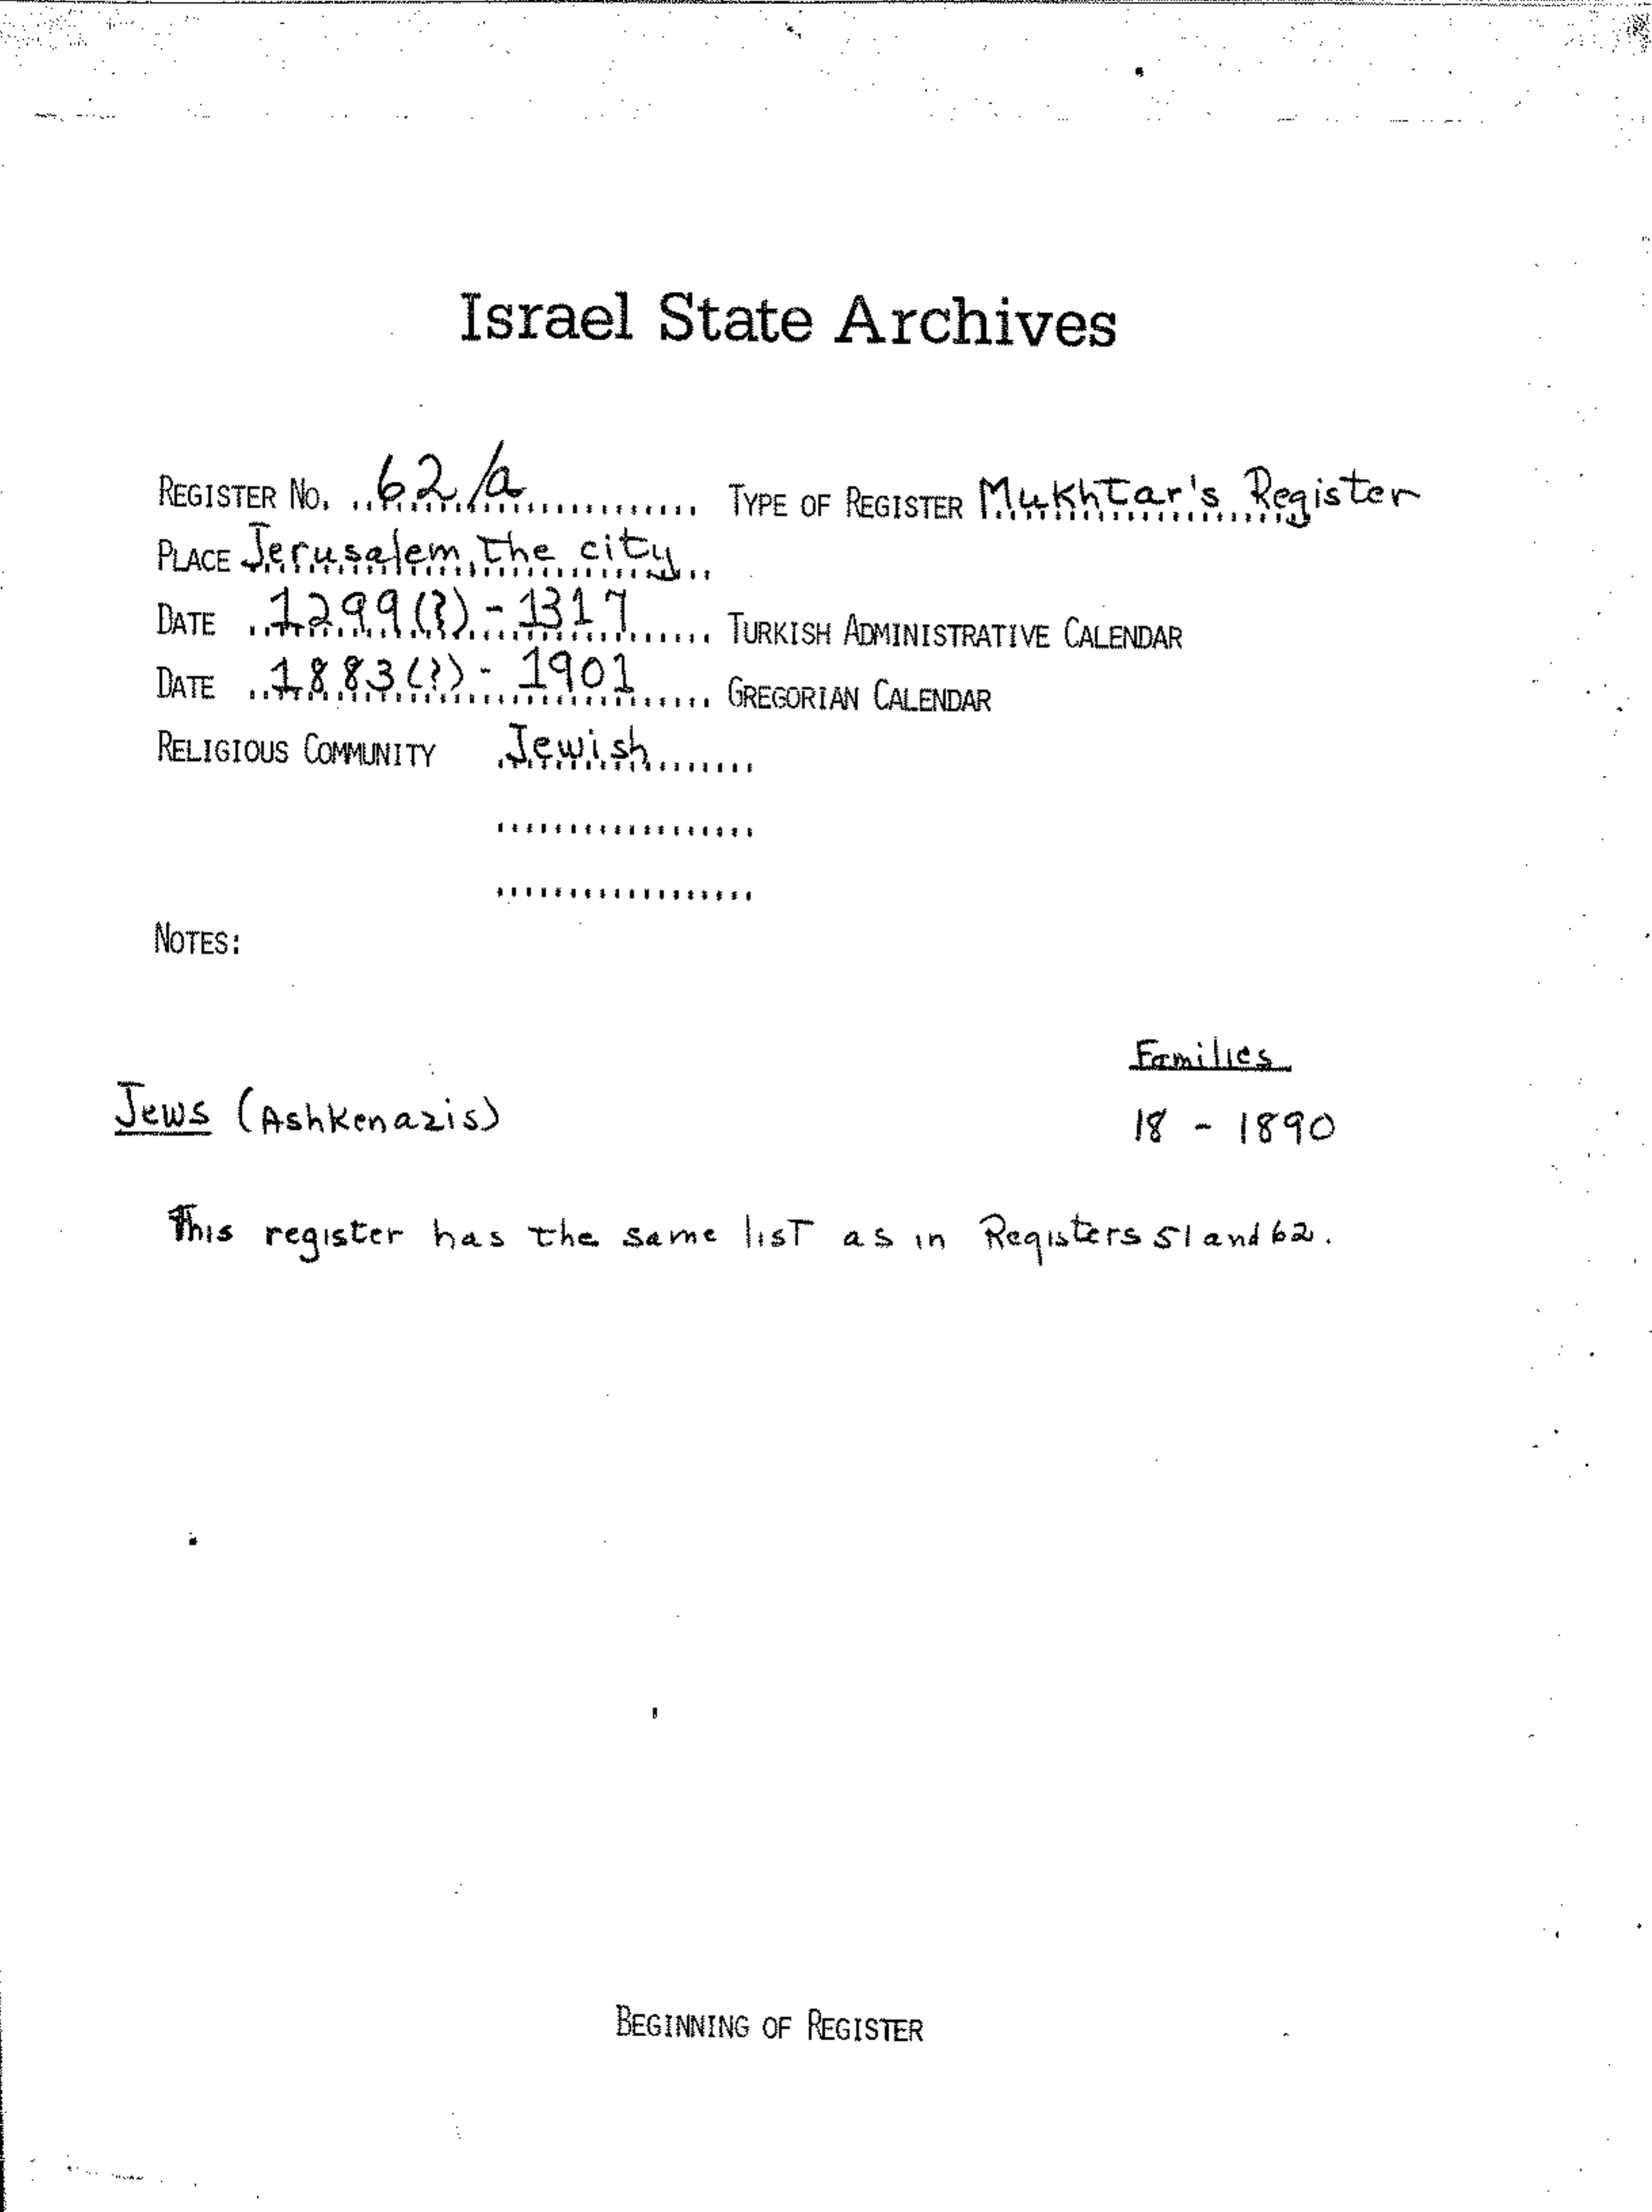 Israel State Archives
REGISTER NO. 62/a TYPE OF REGISTER Mukhtar's Register
PLACE Jerusalem, the city
DATE 1299(?) - 1317 TURKISH ADMINISTRATIVE CALENDAR
DATE 1883(?) - 1901 GREGORIAN CALENDAR
RELIGIOUS COMMUNITY Jewish
NOTES:
Families
Jews (Ashkenazis) 18 - 1890
This register has the same list as in Registers 51 and 62.
BEGINNING OF REGISTER